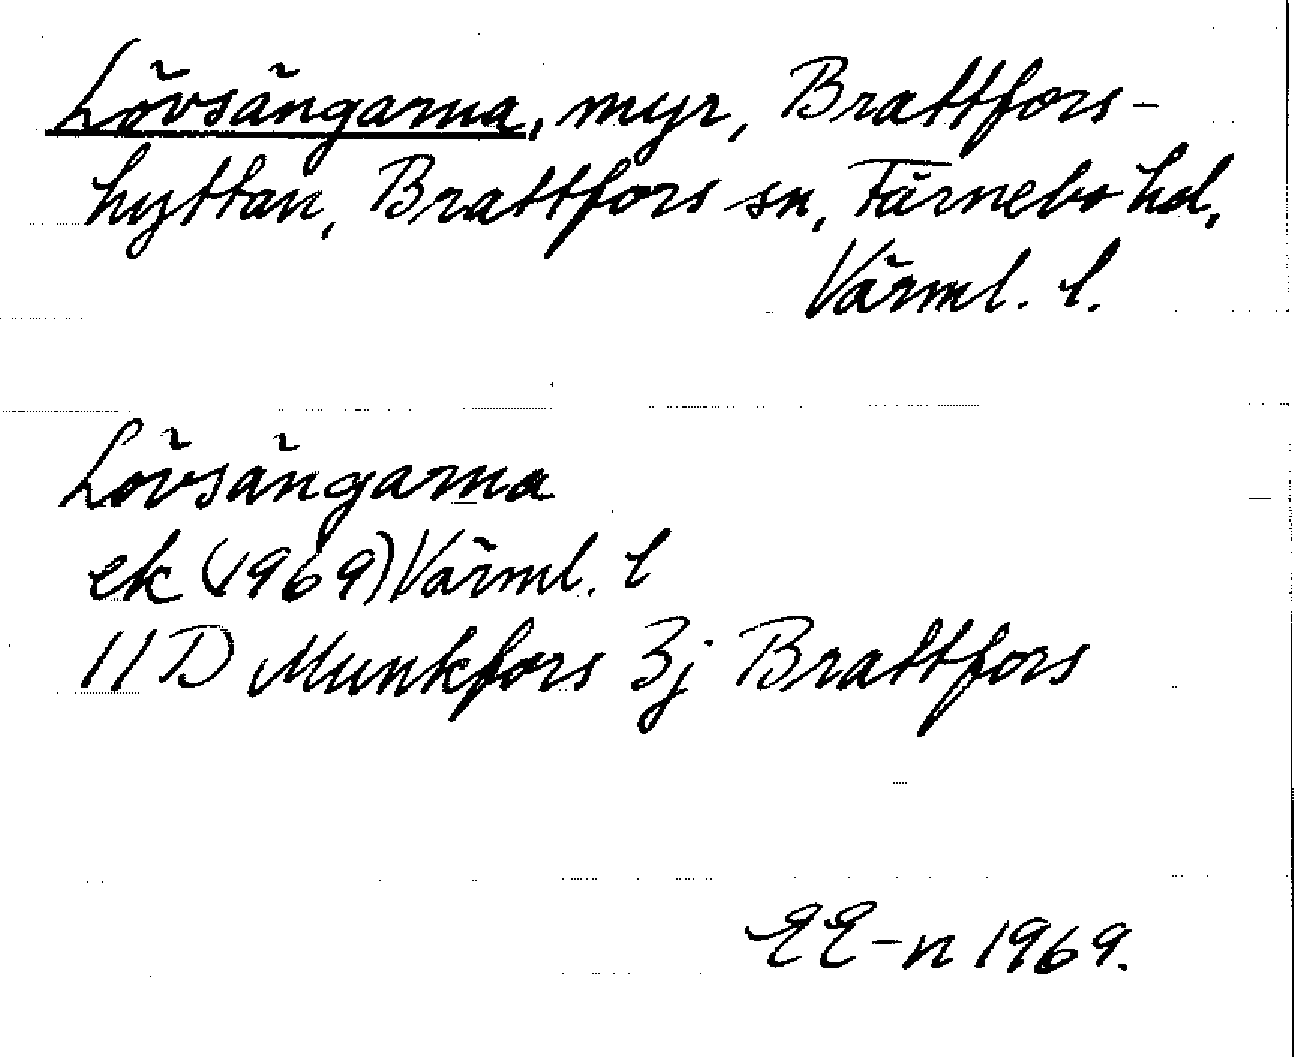 Lövsängarna, myr, Brattfors-
hyttan, Brattfors sn, Färnebo hd,
Värml. l.
Lövsängarna
ek (1969) Värml. l
11D Munkfors 3j Brattfors
EE-n 1969.